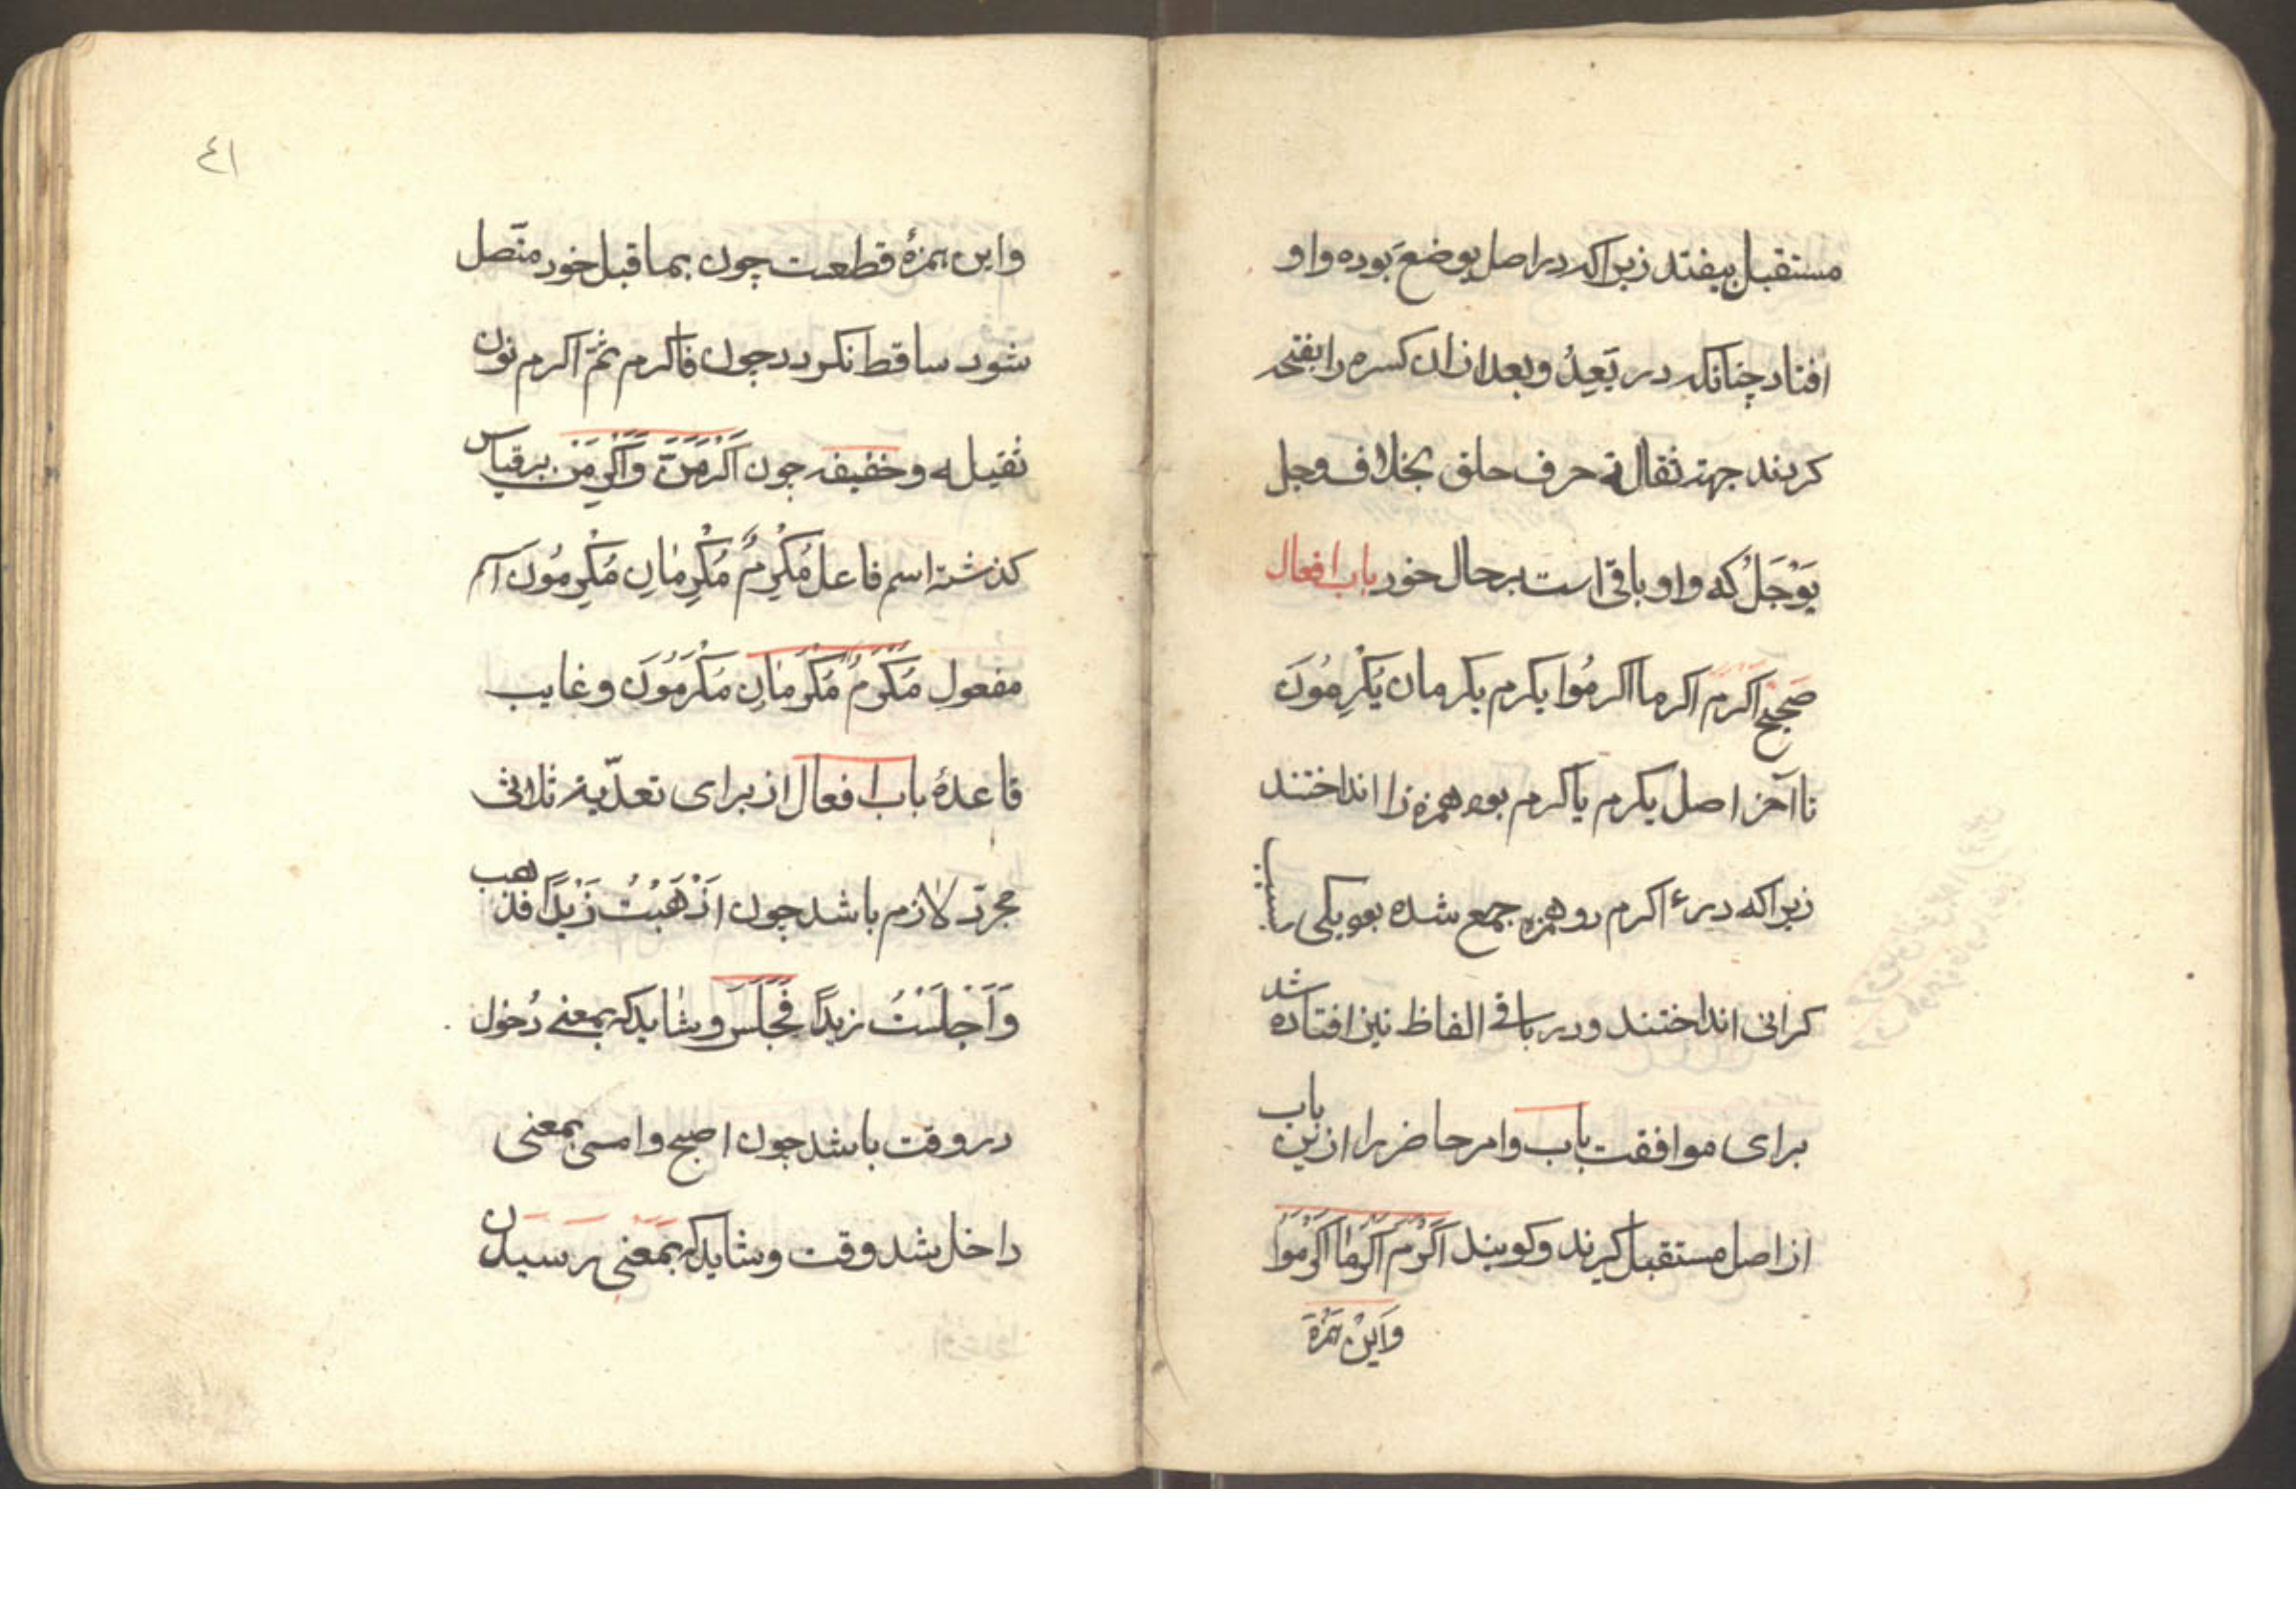 مستقبل بیفتد زیراکه در اصل یوضع بوده واو
افتاد چنانکه در یَعِدُ وبعد ازان کسره را بفتحه
کردند جهت ثقالة حرف حلق بخلاف وجل
یَوْجَلُ که واو باقی است برحال خود باب افعال
صحیح اکرم اکرما اکرمُوا یکرم یکرمان یُکْرِمُونَ
تا آخر اصل یکرم یأکرم بود همزه را انداختند
زیراکه در ءاکرم دو همزه جمع شده بود یکی بسبب
کرانی انداختند ودر باقی الفاظ نیز افتاده شد
برای موافقت باب وامر حاضر را ازین باب
از اصل مستقبل کیرند وکویند اَکْرِم اَکْرِمٰا اَکْرِمُوا
وَاین همزة
٤١
واین همزهٔ قطعست چون بما قبل خود متّصل
شود ساقط نکردد چون فاکرم ثمّ اکرم نون
ثقیله وخفیفه چون اَکْرِمَنَّ وَاَکْرِمَنْ برقیاس
کذشته اسم فاعل مُکْرِمٌ مُکْرِمٰانِ مُکْرِمُونَ اسم
مفعول مُکْرَمٌ مُکْرَمٰانِ مُکْرَمُونَ وغایب
قاعدهٔ باب افعال از برای تعدّیهٔ ثلاثی
مجرّد لازم باشد چون اَذْهَبْتُ زَیْدًا فذهب
وَاَجْلَسْتُ زیدًا فَجَلَسَ وشاید که بمعنی دُخول
در وقت باشد چون اصبح وامسی بمعنی
داخل شد وقت وشاید که بمعنی رسیدن